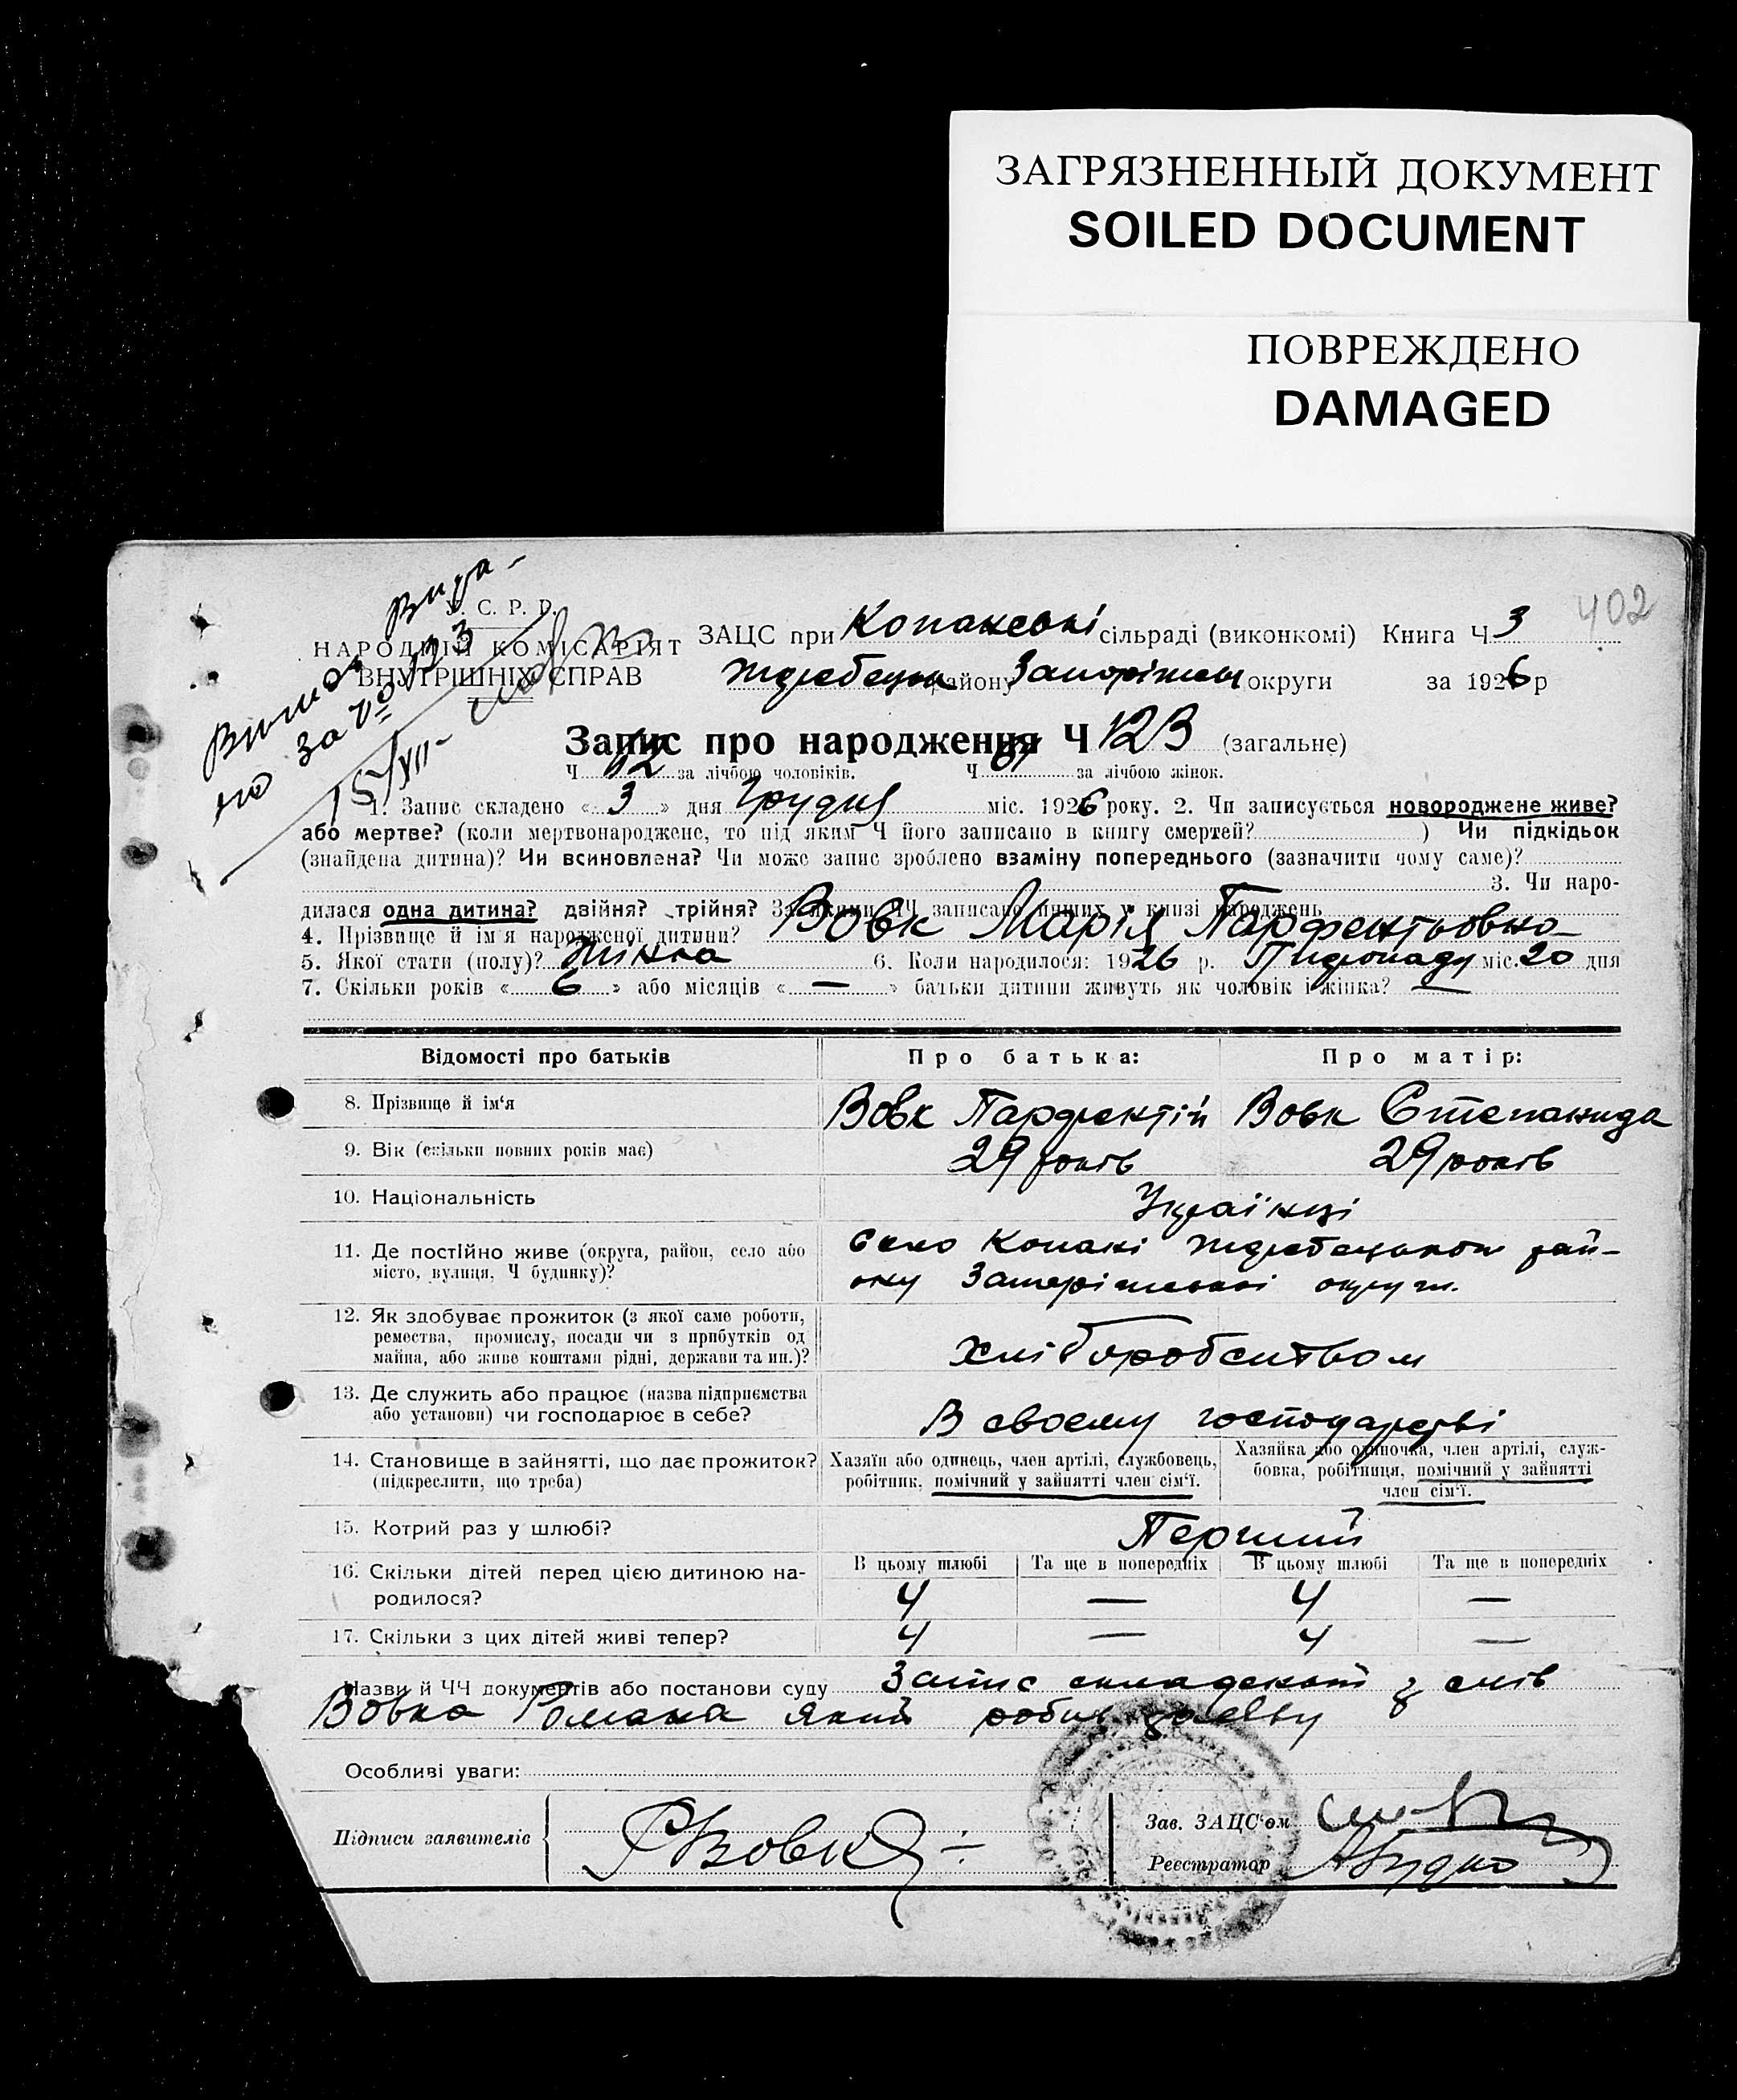 ЗАГРЯЗНЕННЫЙ ДОКУМЕНТ
SOILED DOCUMENT
ПОВРЕЖДЕНО
DAMAGED
402
У. С. Р. Р.
НАРОДНІЙ КОМІСАРІЯТ
ВНУТРІШНІХ СПРАВ
ЗАЦС при Копанській сільраді (виконкомі) Книга Ч 3
району округи за 1926 р
Запис про народження Ч 123 (загальне)
Ч 62 за лічбою чоловіків. Ч 61 за лічбою жінок.
1. Запис складено «3» дня Грудня міс. 1926 року. 2. Чи записується новороджене живе?
або мертве? (коли мертвонароджене, то під яким Ч його записано в книгу смертей? ) Чи підкідьок
(знайдена дитина)? Чи всиновлена? Чи може запис зроблено взаміну попереднього (зазначити чому саме)?
3. Чи наро-
дилася одна дитина? двійня? трійня? За якими ЧЧ записано инших у книзі народжень
4. Прізвище й ім'я народженої дитини? Вовк Марія Парфентьовна
5. Якої стати (полу)? Жінка 6. Коли народилося: 1926 р. Листопаду міс. 20 дня
7. Скільки років «6» або місяців «—» батьки дитини живуть як чоловік і жінка? —
Відомості про батьків
Про батька:
Про матір:
8. Прізвище й ім'я
Вовк Парфентій
Вовк Степанида
9. Вік (скільки повних років має)
29 років
29 років
10. Національність
Українці
11. Де постійно живе (округа, район, село або
місто, вулиця, Ч будинку)?
Село Копані рай-
ону округи.
12. Як здобуває прожиток (з якої саме роботи,
ремества, промислу, посади чи з прибутків од
майна, або живе коштами рідні, держави та ин.)?
Хліборобством
13. Де служить або працює (назва підприємства
або установи) чи господарює в себе?
В своєму господарстві
14. Становище в зайнятті, що дає прожиток?
(підкреслити, що треба)
Хазяїн або одинець, член артілі, службовець,
робітник, помічний у зайнятті член сім'ї.
Хазяйка або одиночка, член артілі, служ-
бовка, робітниця, помічний у зайнятті
член сім'ї.
15. Котрий раз у шлюбі?
Перший
16. Скільки дітей перед цією дитиною на-
родилося?
В цьому шлюбі
Та ще в попередніх
В цьому шлюбі
Та ще в попередніх
4 — 4 —
17. Скільки з цих дітей живі тепер?
4 — 4 —
Назви й ЧЧ документів або постанови суду Запис складений з слів
Вовка Романа який робив заяву
Особливі уваги:
Підписи заявителів
Р Вовк
Зав. ЗАЦС'ом
Реєстратор